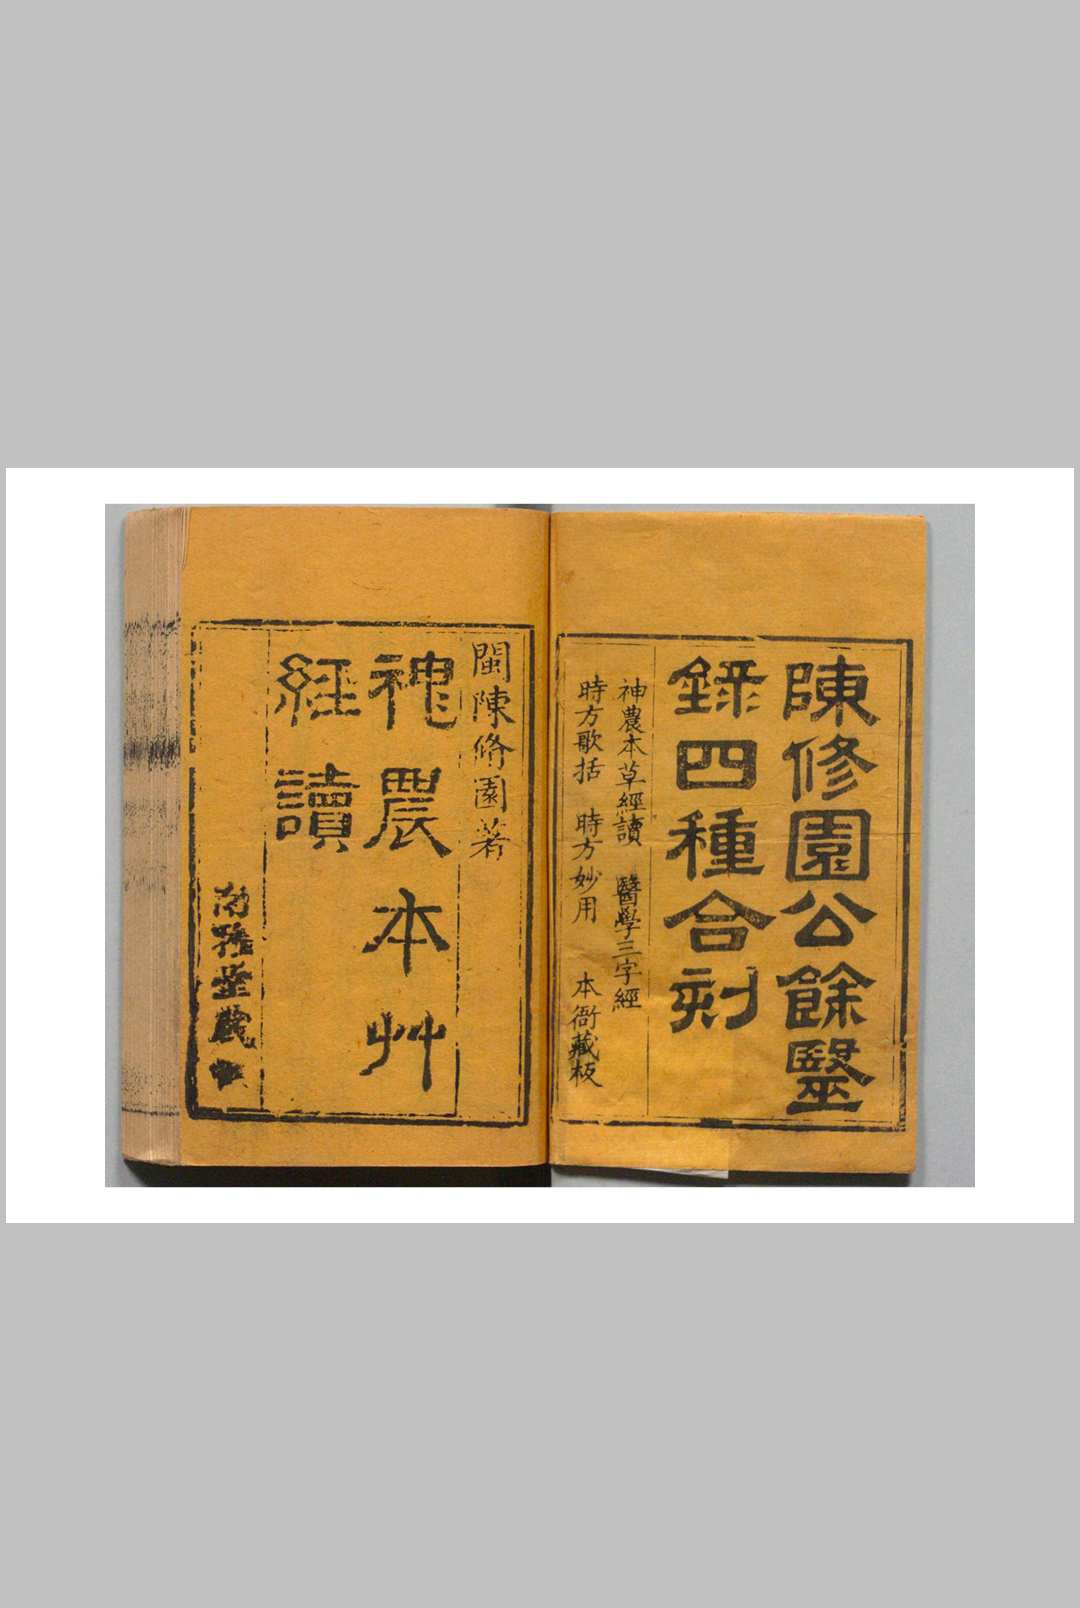 陳修園公餘毉
錄四種合刻
神農本草經讀 醫學三字經
時方歌括 時方妙用 本衙藏板
閩陳修園著
神農本艸
經讀
南雅堂藏